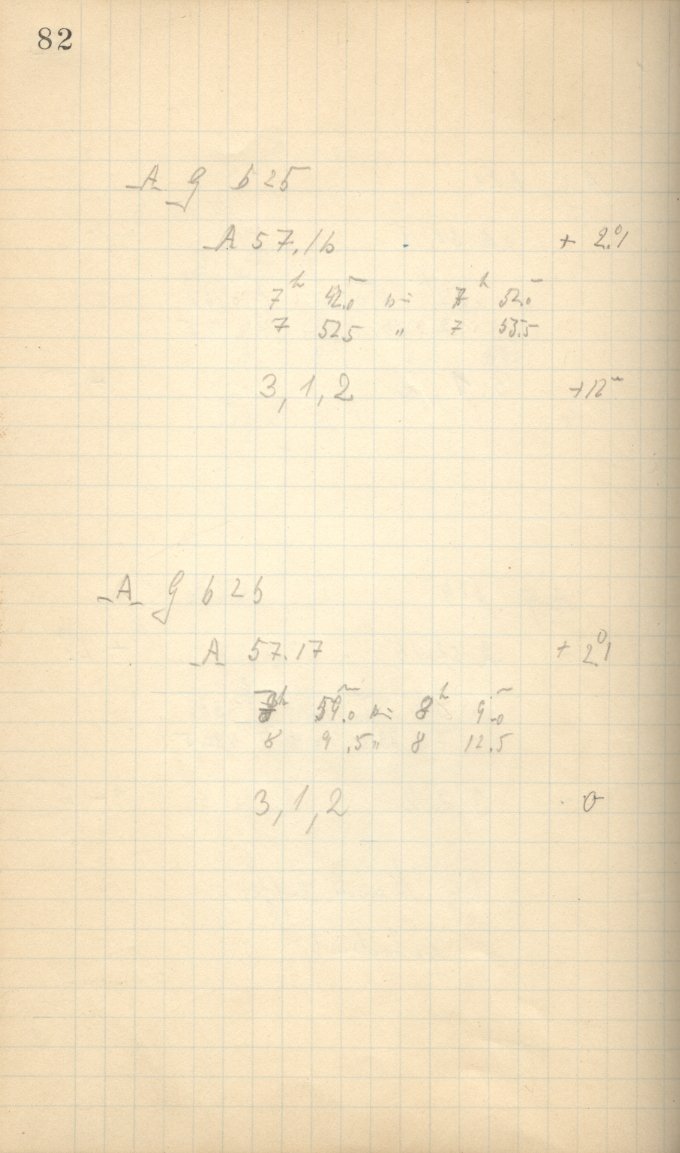 82
A G 625
A 57.16 + 2°.1
7h 42.0m bis 7h 52.0m
7 52.5 " 7 55.5
3, 1, 2 +12m
A G 626
A 57.17 + 2°.1
7h 59.0m bis 8h 9.0m
8 9.5 " 8 12.5
3, 1, 2 0